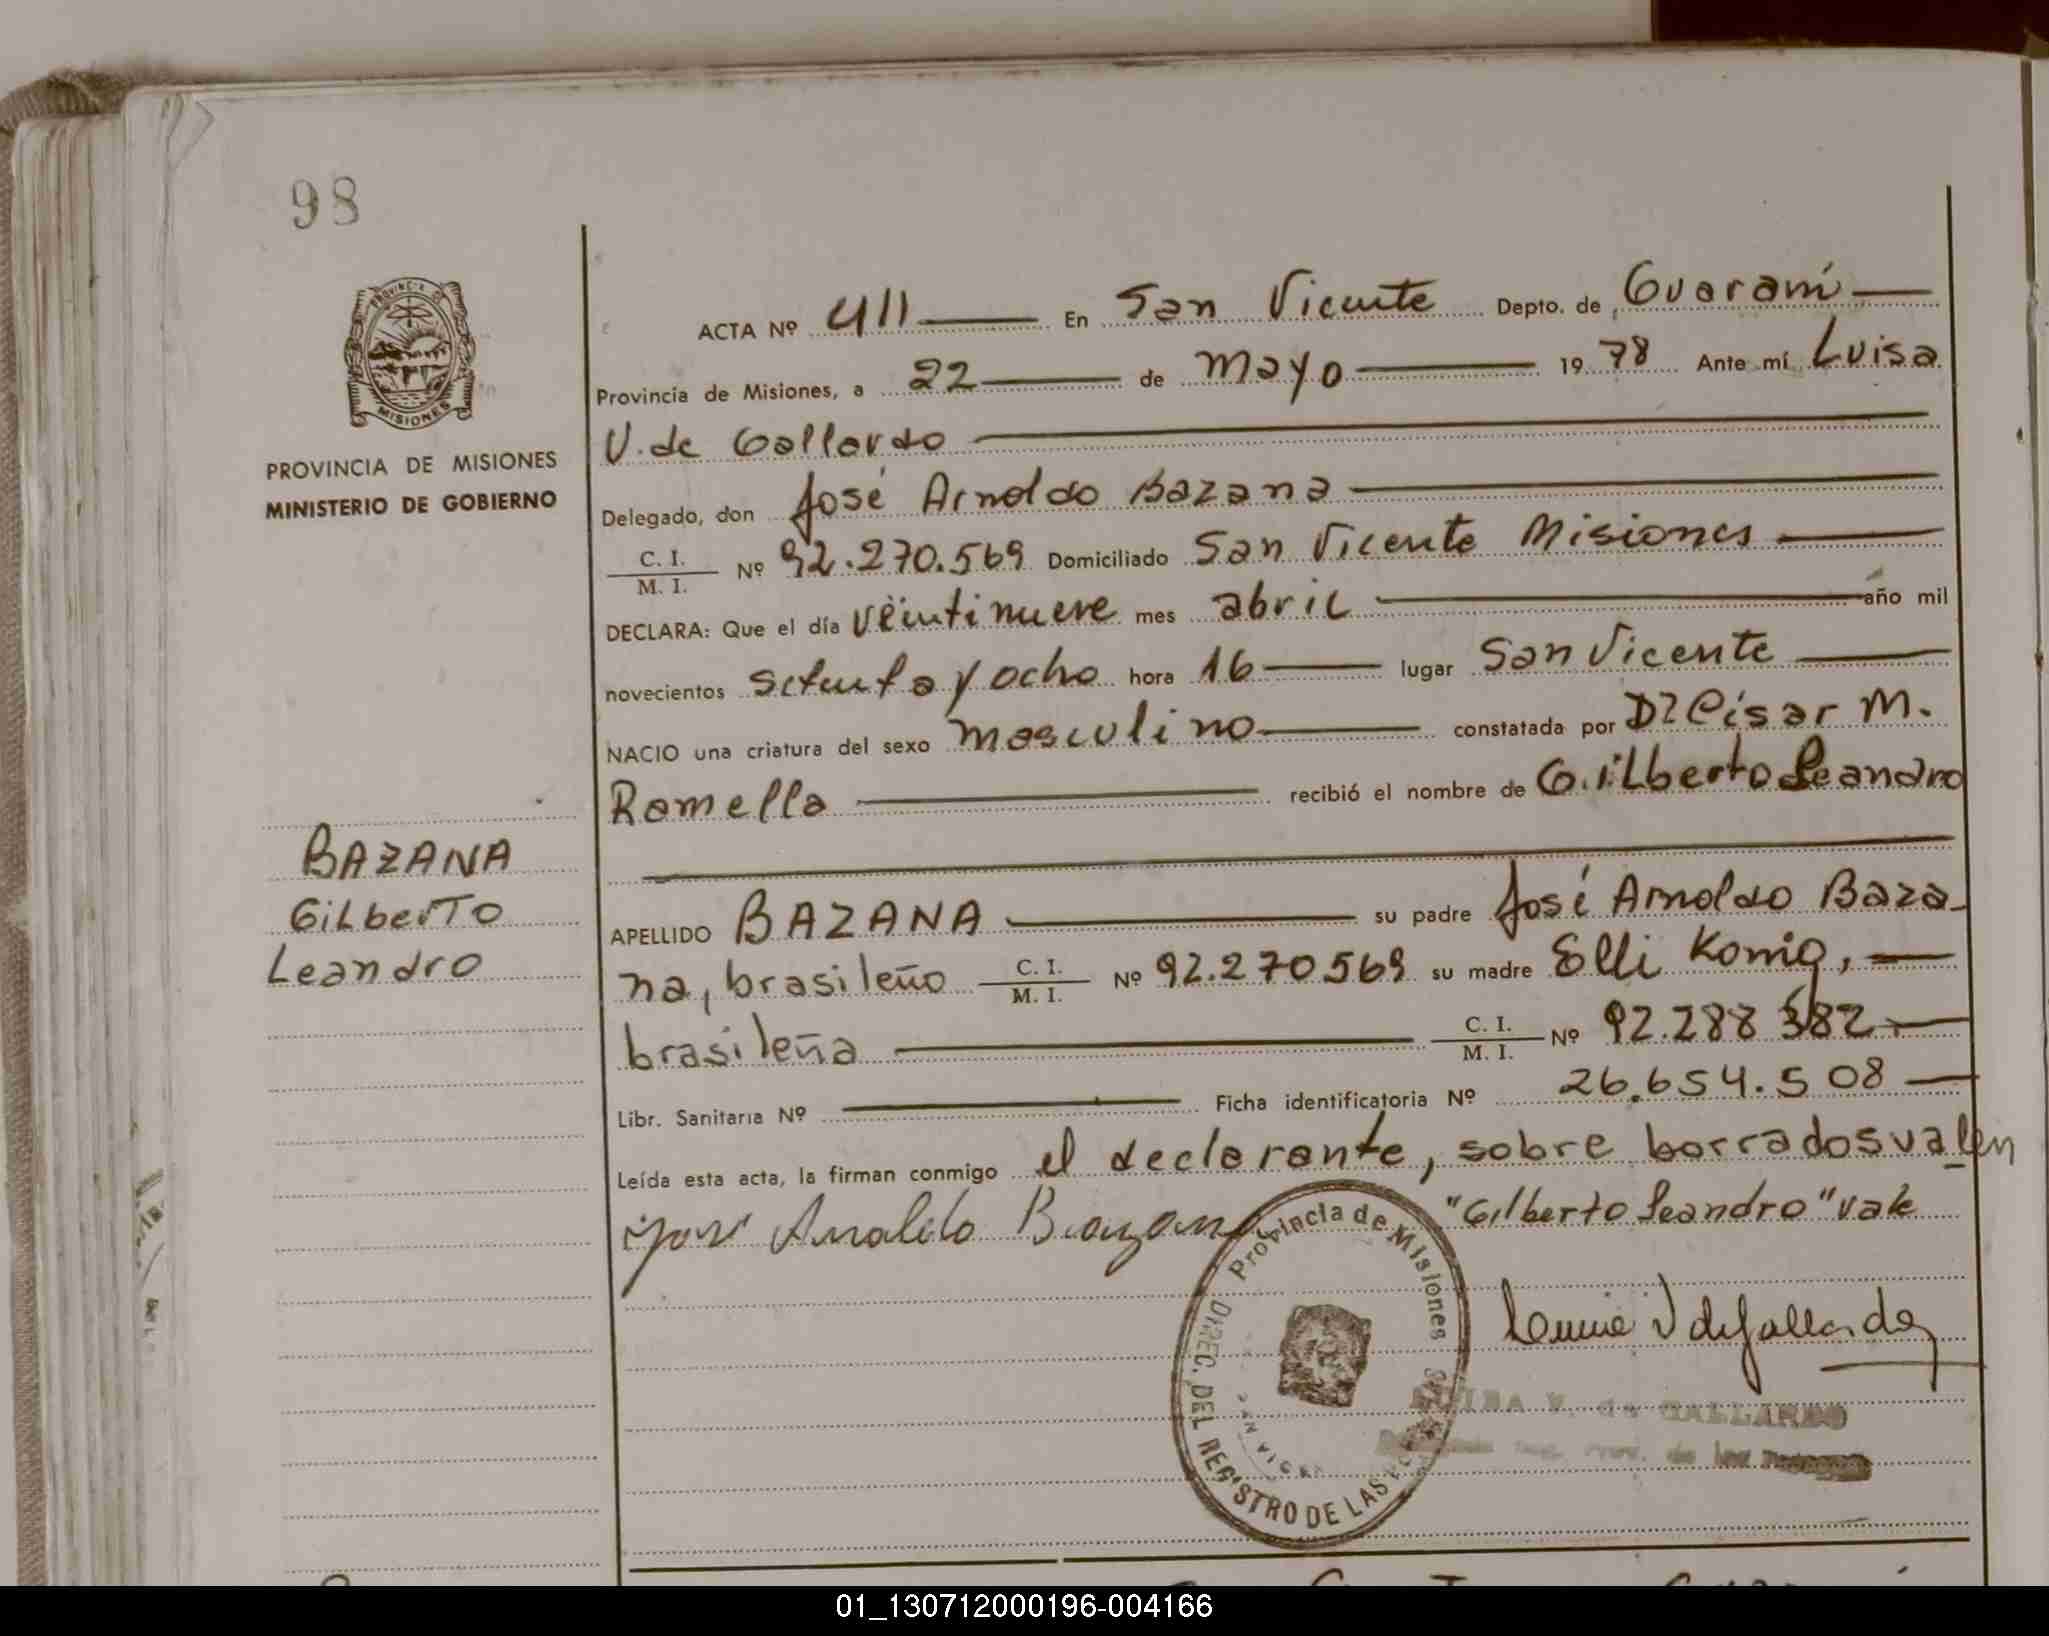 98
PROVINCIA DE
MISIONES
PROVINCIA DE MISIONES
MINISTERIO DE GOBIERNO
BAZANA
GiLberTo
Leandro
ACTA Nº 411 En San Vicente Depto. de Guaraní
Provincia de Misiones, a 22 de Mayo 1978 Ante mí Luisa
V. de Gallardo
Delegado, don José Arnoldo Bazana
C. I.
M. I. Nº 92.270.569 Domiciliado San Vicente Misiones
DECLARA: Que el día veintinueve mes abril año mil
novecientos setenta y ocho hora 16 lugar San Vicente
NACIO una criatura del sexo masculino constatada por Dr César M.
Ramella recibió el nombre de Gilberto Leandro
APELLIDO BAZANA su padre José Arnoldo Baza-
na, brasileño C. I.
M. I. Nº 92.270569 su madre Elli Konig,
brasileña C. I.
M. I. Nº 92.288 382
Libr. Sanitaria Nº Ficha identificatoria Nº 26.654.508
Leída esta acta, la firman conmigo el declarante, sobre borrados valen
"Gilberto Leandro" vale
José Arnaldo Bazana
Provincia de Misiones
DIREC. DEL REGISTRO DE LAS
V. de GALLARDO
de las
01_130712000196-004166